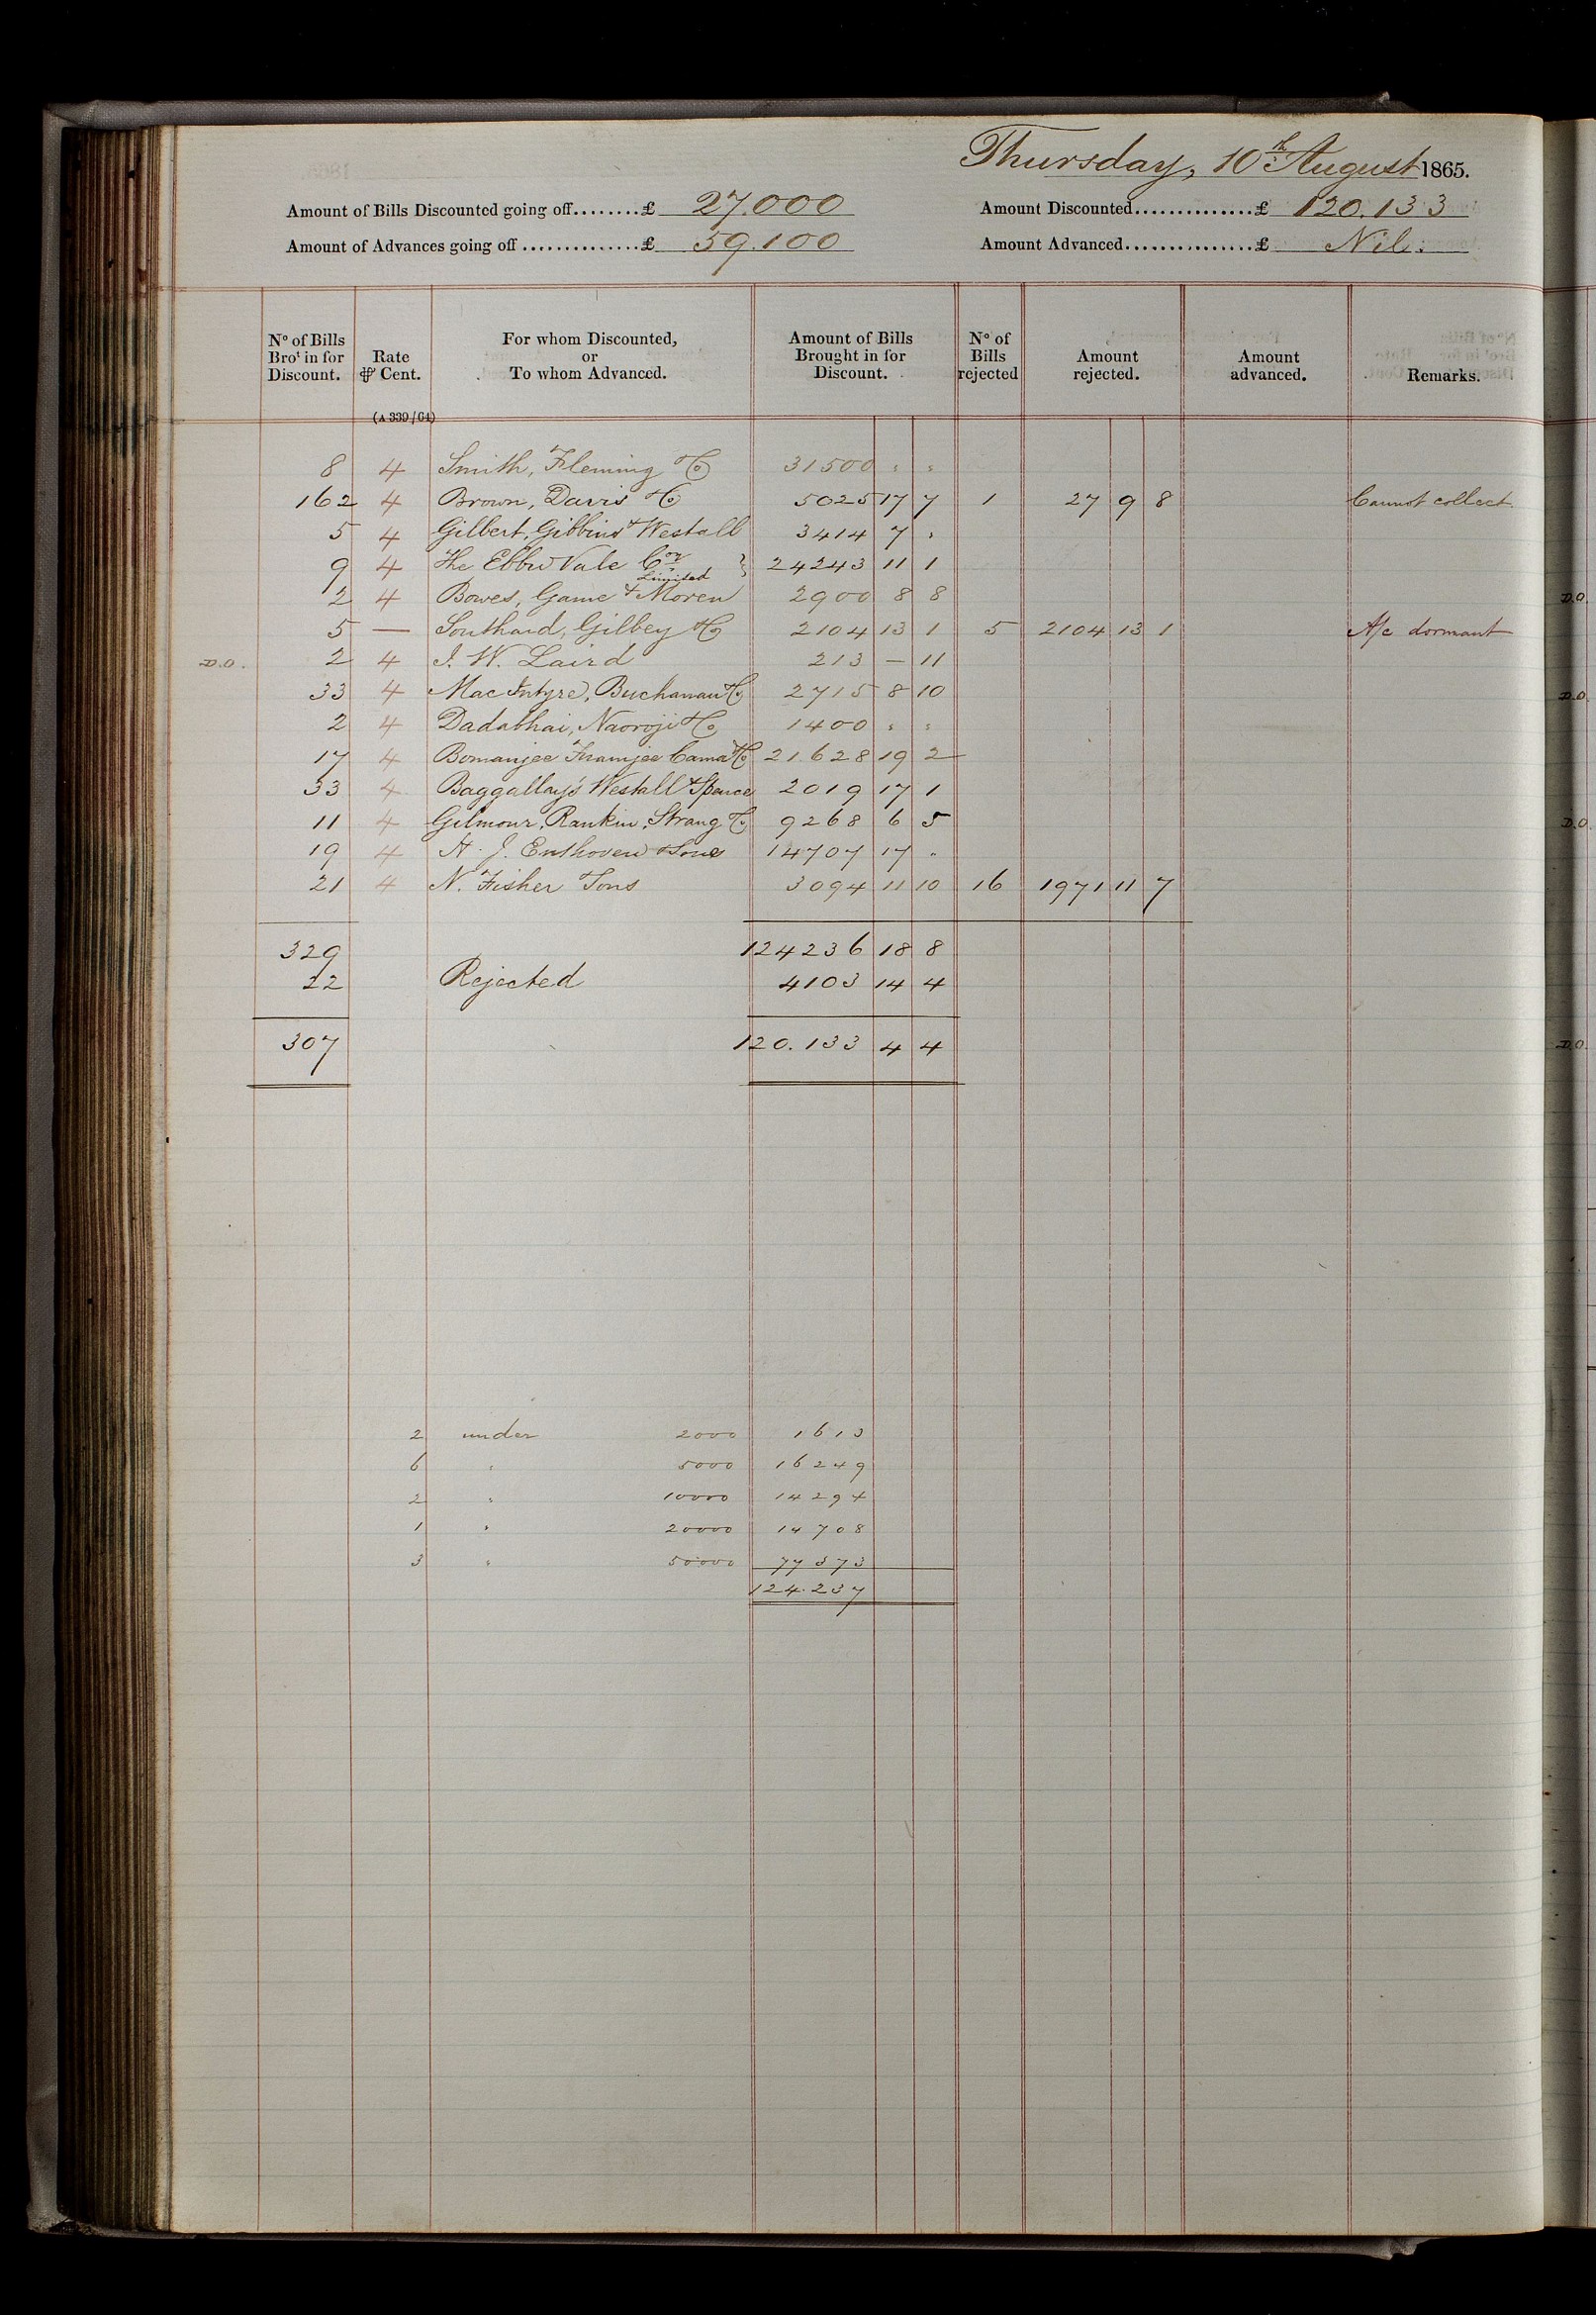 Thursday, 10th August 1865.
Amount of Bills Discounted going off........£ 27.000 Amount Discounted..............£ 120.133
Amount of Advances going off ..............£ 59.100 Amount Advanced................£ Nil.
No of Bills Brot in for Discount. Rate ⅌ Cent. For whom Discounted, or To whom Advanced. Amount of Bills Brought in for Discount. No of Bills rejected Amount rejected. Amount advanced. Remarks.
(A 339/64)
8 4 Smith, Fleming & Co 31500 " "
162 4 Brown, Davis & Co 5025 17 7 1 27 9 8 Cannot collect.
5 4 Gilbert, Gibbins & Westall 3414 7 "
9 4 The Ebbw Vale Coy Limited } 24243 11 1
2 4 Bowes, Game & Moren 2900 8 8
5 — Southard, Gilbey & Co 2104 13 1 5 2104 13 1 A/c dormant
D.O. 2 4 J. W. Laird 213 — 11
33 4 MacIntyre, Buchanan & Co 2715 8 10
2 4 Dadabhai, Naoroji & Co 1400 " "
17 4 Bomanjee Framjee Cama & Co 21.628 19 2
33 4 Baggallay's Westall & Spence 2019 17 1
11 4 Gilmour, Rankin, Strang & Co 9268 6 5
19 4 H. J. Enthoven & Sons 14707 17 "
21 4 N. Fisher & Sons 3094 11 10 16 1971 11 7
329 124236 18 8
22 Rejected 4103 14 4
307 120.133 4 4
2 under 2000 1613
6 " 5000 16249
2 " 10000 14294
1 " 20000 14708
3 " 50000 77373
124.237
D.O.
D.O.
D.O.
D.O.